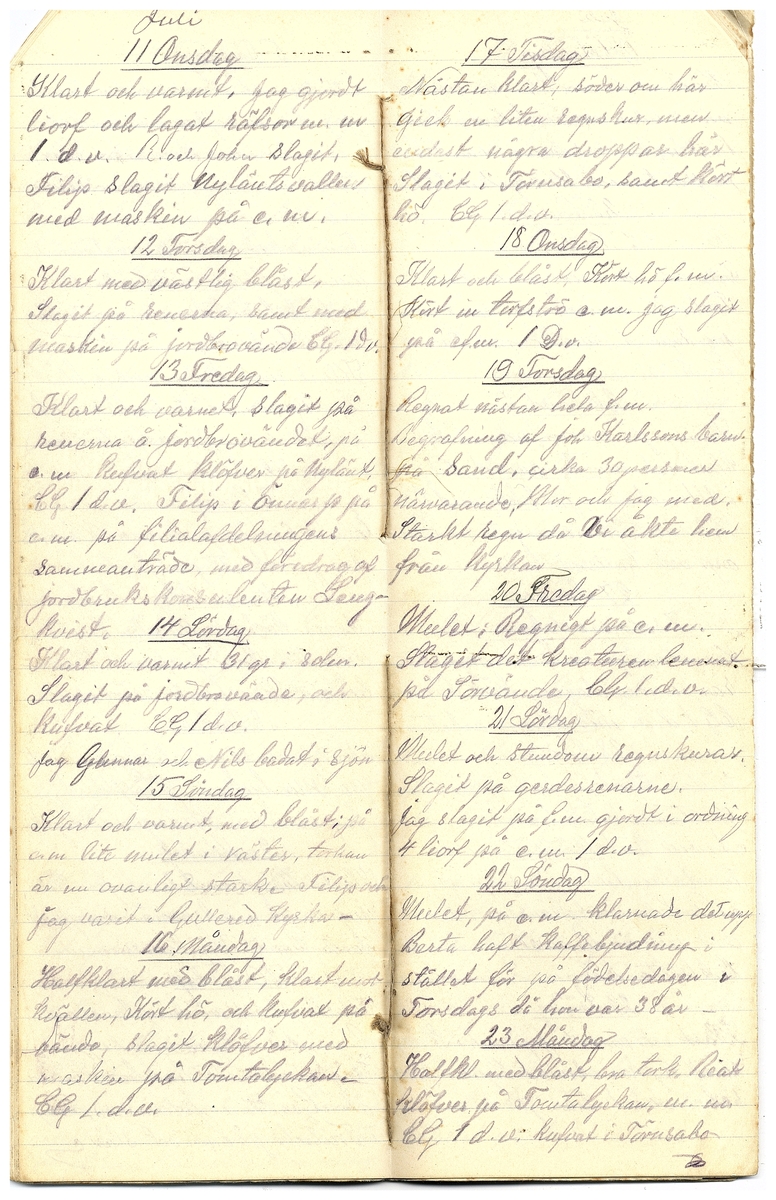 Juli
11 Onsdag
Klart och varmt. Jag gjordt
liorf och lagat räfsor m. m
1. d. v. K. och John slagit,
Filip slagit Nyläntsvallen
med maskin på e. m.
12 Torsdag
Klart med västlig blåst.
Slagit på renerna, samt med
maskin på jordbrovände CG. 1 d v.
13 Fredag
Klart och varmt, slagit på
renerna å jordbrovändet, på
e. m kufvat klöfver på Nylänt.
CG 1 d. v. Filip i Önnarp på
e. m. på filialafdelningens
sammanträde, med föredrag af
jordbrukskonsulenten Ljung-
kvist.
14 Lördag
Klart och varmt 31 gr. i solen.
Slagit på jordbrovände, och
kufvat CG 1 d. v.
Jag Gunnar och Nils badat i sjön
15 Söndag
Klart och varmt, med blåst, på
e. m lite mulet i väster, torkan
är nu ovanligt stark. Filip och
jag varit i Gullered kyrka -
16 Måndag
Halfklart med blåst, klart mot
kvällen, Kört hö, och kufvat på
vände, slagit klöfver med
maskin på Tomtalyckan.
CG 1. d. v.
17 Tisdag
Nästan klart, söder om här
gick en liten regnskur, men
endast några droppar här
Slagit i Törnsabo, samt kört
hö. CG 1. d. v.
18 Onsdag
Klart och blåst, Kört hö f. m.
Kört in torfströ e. m. jag slagit
på e f m. 1 D. v.
19 Torsdag
Regnat nästan hela f. m.
Begrafning af Joh Karlssons barn
på Sand, cirka 30 personer
närvarande, Mor och jag med.
Starkt regn då Vi åkte hem
från kyrkan
20 Fredag
Mulet; Regnigt på e. m.
Slaget det kreaturen lemnat
på Sörvände, CG. 1. d. v.
21 Lördag
Mulet och stundom regnskurar.
Slagit på gerdesrenarne.
Jag slagit på f. m. gjordt i ordning
4 liorf på e. m. 1 d. v.
22 Söndag
Mulet, på e. m. klarnade det upp
Berta haft kaffebjudning i
stället för på födelsedagen i
Torsdags då hon var 38 år -
23 Måndag
Halfkl. med blåst, bra tork.
klöfver på Tomtalyckan, m. m
CG 1 d. v. kufvat i Törnsabo